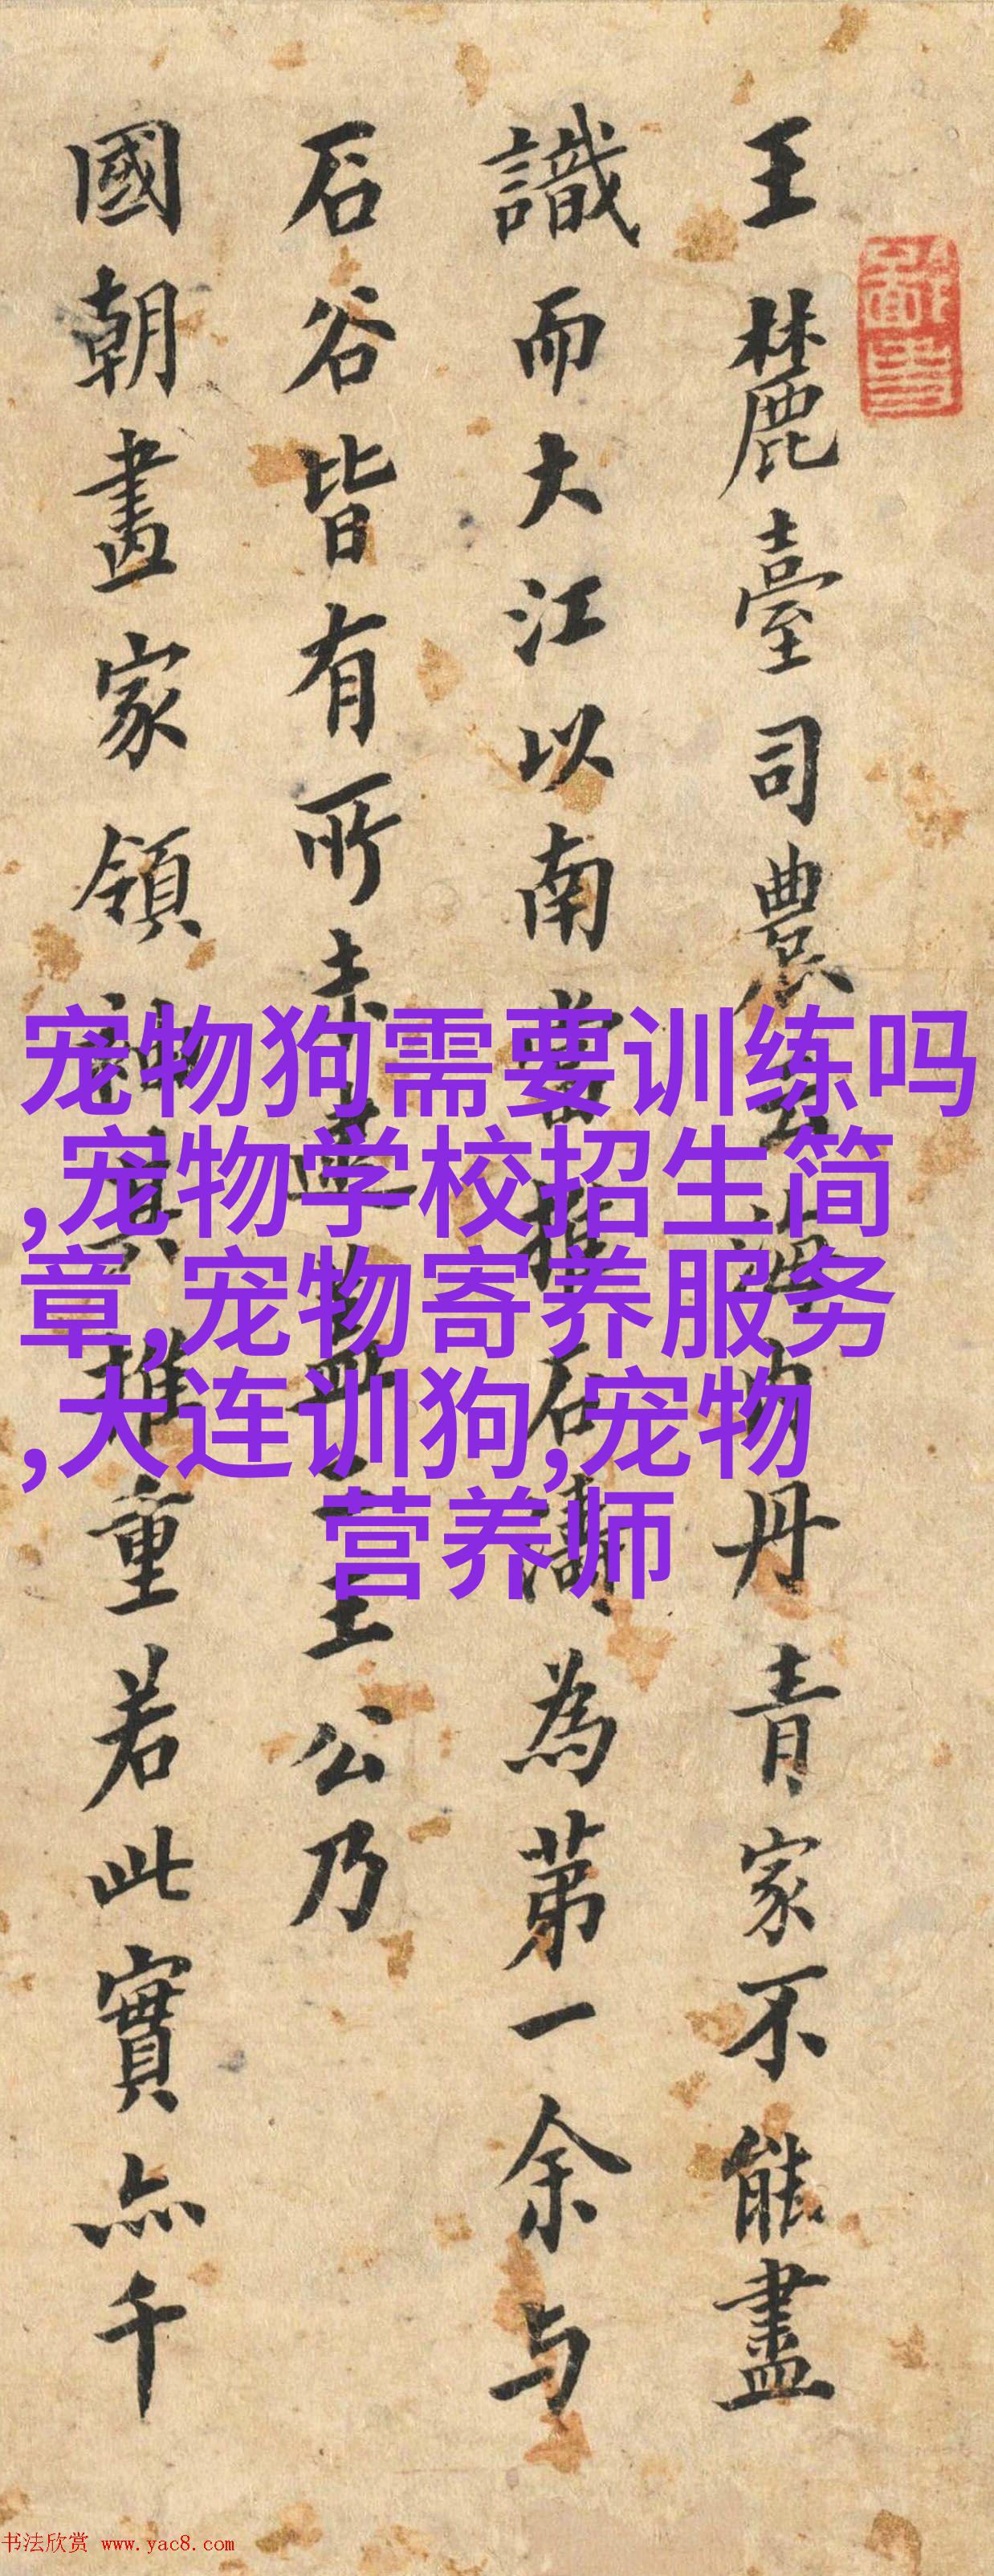 王麓臺司農云海内丹青家不能盡
識而大江以南當推石濤為第一余与
石谷皆有所未逮王公乃
國朝畫家領袖其推重若此實亦千
宠物狗需要训练吗
,宠物学校招生简
章,宠物寄养服务
,大连训狗,宠物
营养师
书法欣赏 www.yac8.com